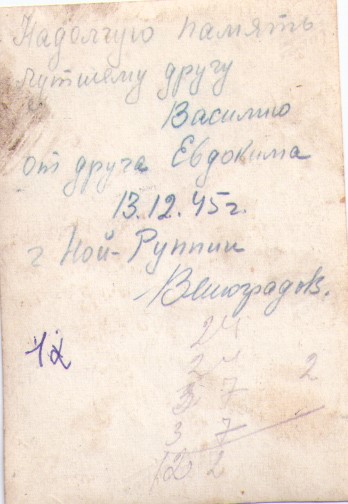 На долгую память
лутшему другу
Василию
от друга Евдокима
13.12.45г.
г Ной-Руппин
Виноградов.
12
24
24 2
3 7
3 7
122